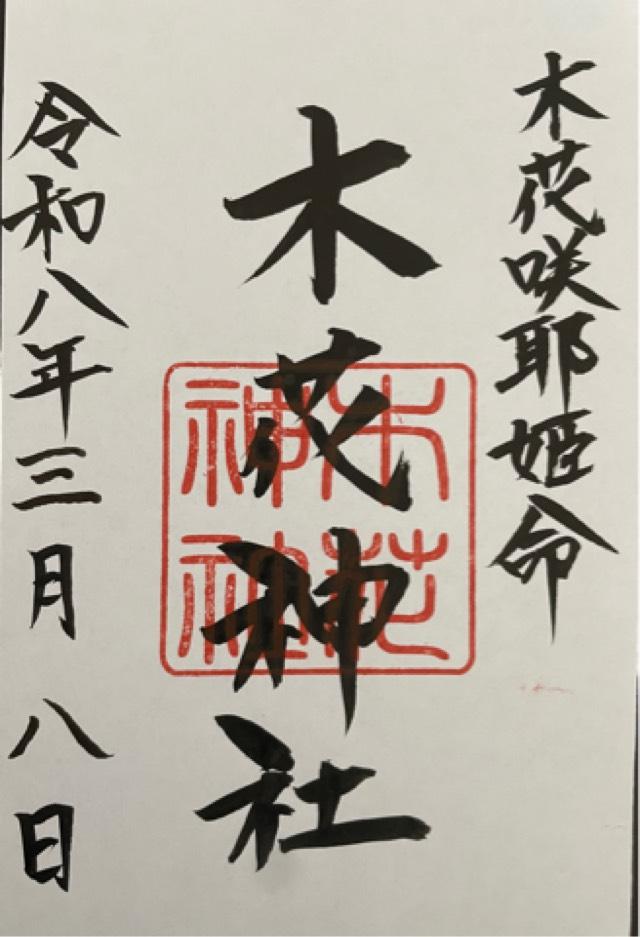 木花咲耶姫命
木花神社
木花神社
令和八年三月八日